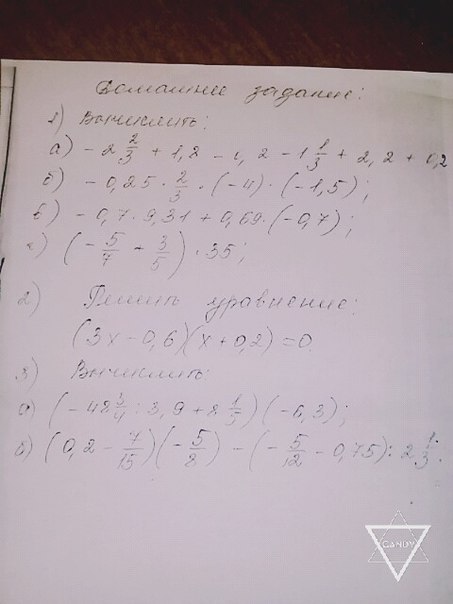 Домашнее задание:
1) Вычислить:
а) -2 2/3 + 1,8 - 0,2 - 1 1/3 + 2,2 + 0,2
б) -0,25 · 2/3 · (-4) · (-1,5);
в) -0,7 · 9,31 + 0,69 · (-0,7);
г) (-5/7 + 3/5) · 35;
2) Решить уравнение:
(3x - 0,6)(x + 0,2) = 0.
3) Вычислить:
а) (-48 3/4 : 3,9 + 8 1/5)(-6,3);
б) (0,2 - 7/15)(-5/8) - (-5/12 - 0,75) : 2 1/3.
CANDY